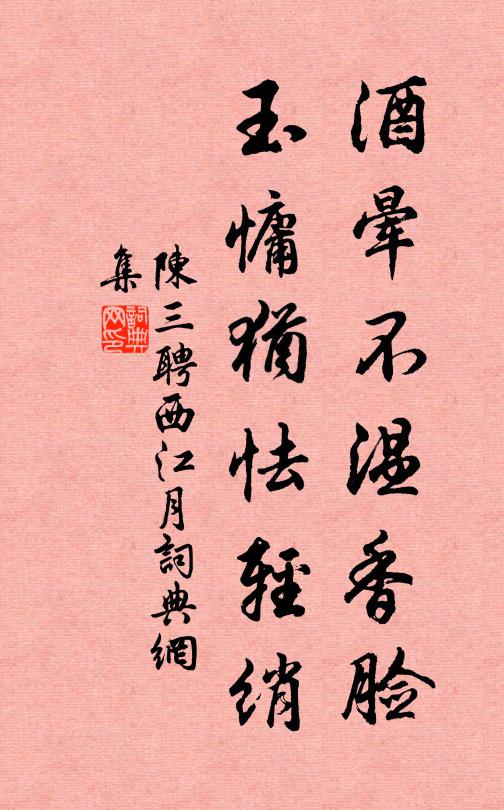 酒暈不温香脸
玉慵猶怯輕绡
陳三聘西江月詞典網
集
詞典网印